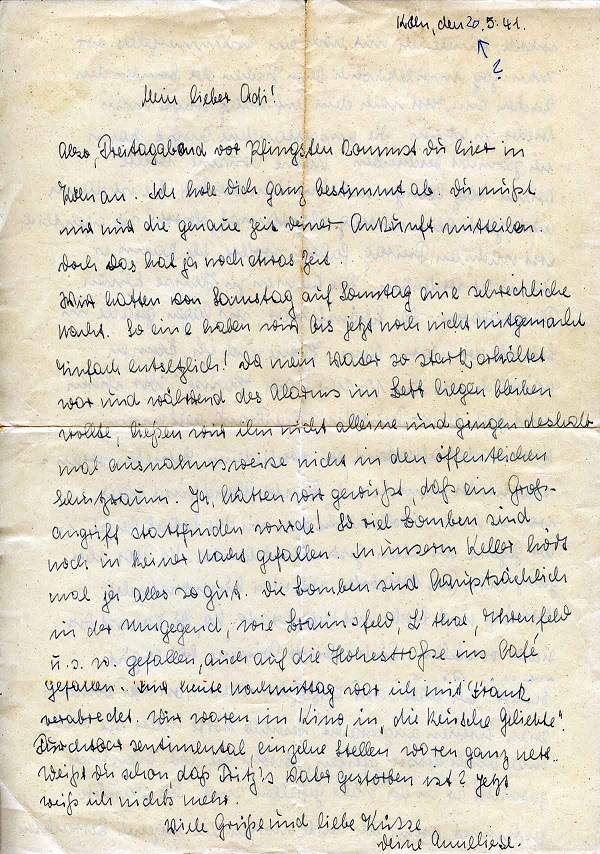 Köln, den 20.5.41.
?
Mein lieber Adi!
Also, Freitagabend vor Pfingsten kommst Du hier in
Köln an. Ich hole Dich ganz bestimmt ab. Du mußt
mir nur die genaue Zeit deiner Ankunft mitteilen.
Doch das hat ja noch etwas Zeit.
Wir hatten von Samstag auf Sonntag eine schreckliche
Nacht. So eine haben wir bis jetzt noch nicht mitgemacht
Einfach entsetzlich! Da mein Vater so stark erkältet
war und während des Alarms im Bett liegen bleiben
wollte, ließen wir ihn nicht alleine und gingen deshalb
mal ausnahmsweise nicht in den öffentlichen
Schutzraum. Ja, hätten wir gewußt, daß ein Groß-
angriff stattfinden würde! So viel Bomben sind
noch in keiner Nacht gefallen. In unserm Keller hört
man ja alles so gut. Die Bomben sind hauptsächlich
in der Umgegend, wie Braunsfeld, L'thal, Ehrenfeld
u.s.w. gefallen, auch auf die Hohestraße ins Café
gefallen. Für heute Nachmittag war ich mit Frank
verabredet. Wir waren im Kino, in „die keusche Geliebte".
Furchtbar sentimental, einzelne Stellen waren ganz nett.
Weißt Du schon, daß Fritz's Vater gestorben ist? Jetzt
weiß ich nichts mehr.
Viele Grüße und liebe Küsse
Deine Anneliese.